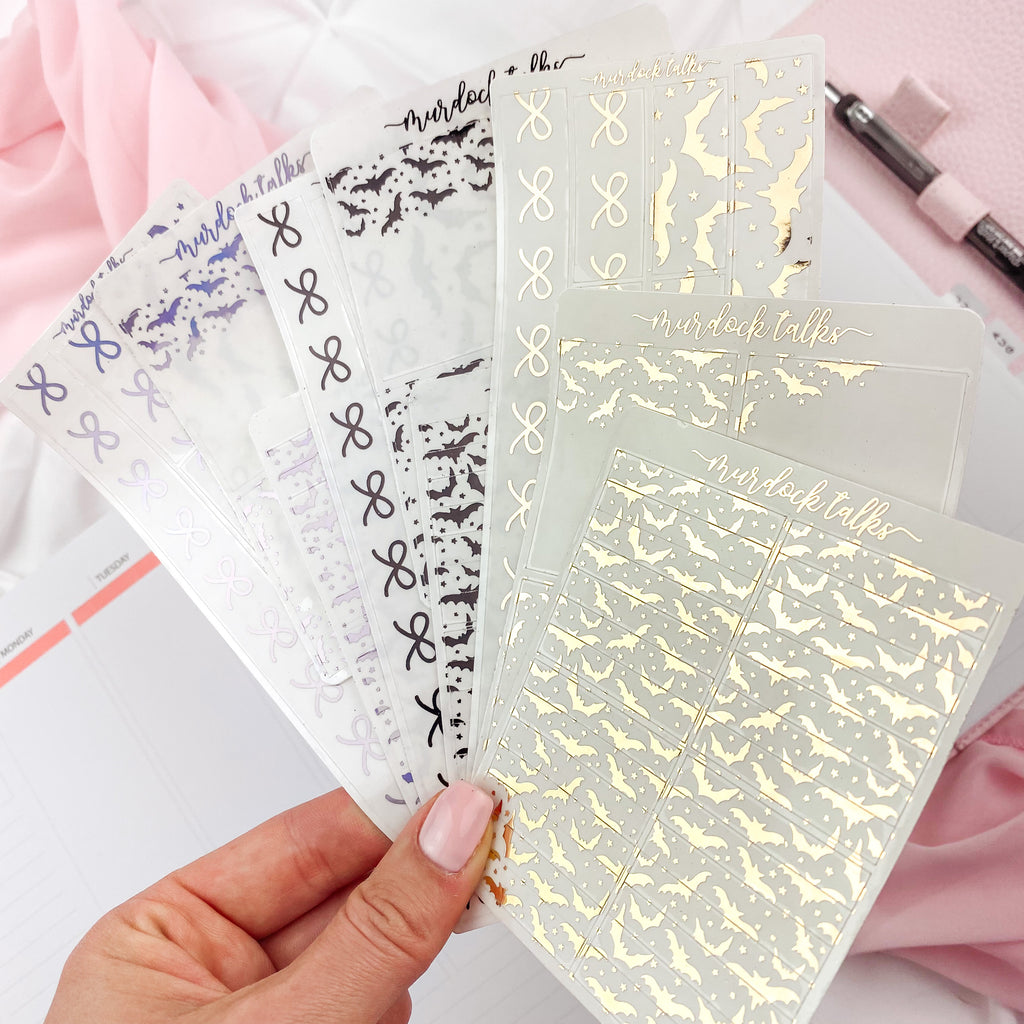 murdock talks
murdock talks
murdock talks
murdock talks
murdock talks
murdock talks
TUESDAY
MONDAY